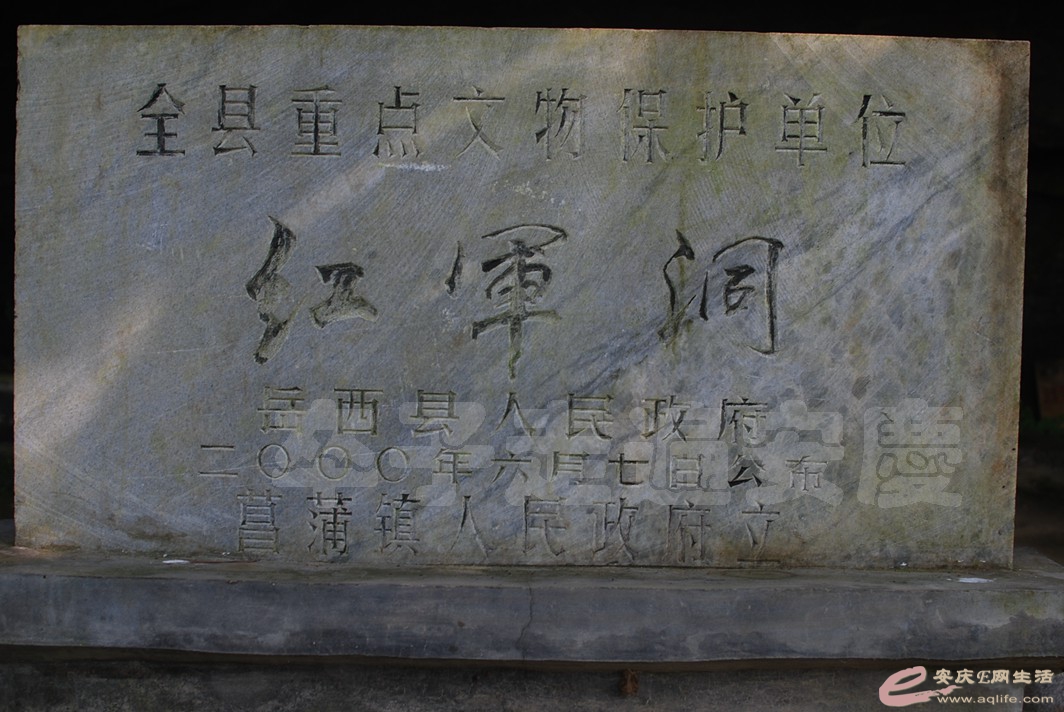 全县重点文物保护单位
红軍洞
岳西县人民政府
二〇〇〇年六月七日公布
菖蒲镇人民政府立
公子走遍安慶
安庆E网生活
www.aqlife.com